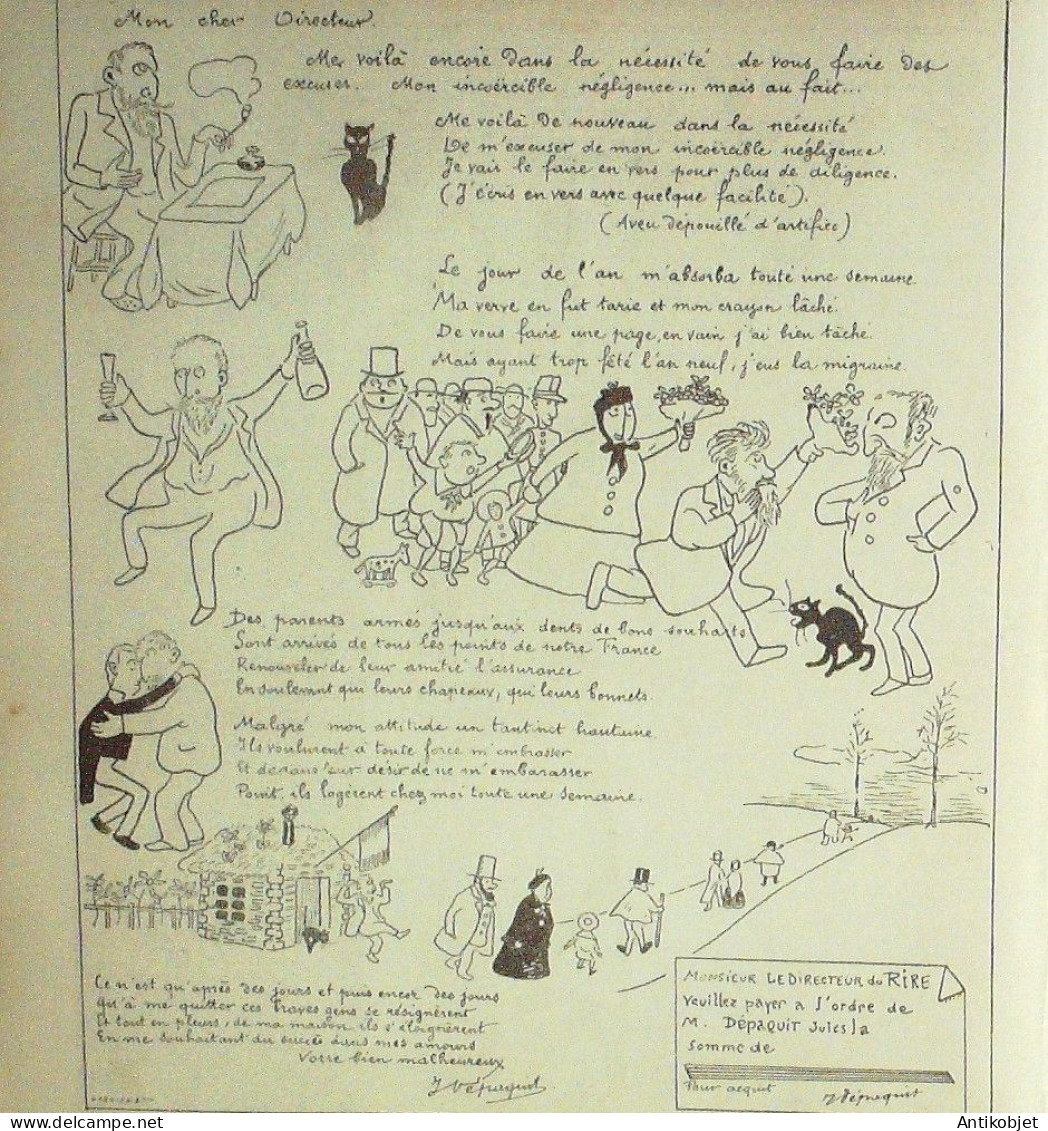 Mon cher Directeur.
Me voilà encore dans la nécessité de vous faire des
excuses. Mon incoërcible négligence... mais au fait...
Me voilà de nouveau dans la nécessité
De m'excuser de mon incoërcible négligence.
Je vais le faire en vers pour plus de diligence.
(J'écris en vers avec quelque facilité).
(Aveu dépouillé d'artifice)
Le jour de l'an m'absorba toute une semaine
Ma verve en fut tarie et mon crayon lâché.
De vous faire une page, en vain j'ai bien tâché.
Mais ayant trop fêté l'an neuf, j'eus la migraine.
Des parents armés jusqu'aux dents de bons souhaits
Sont arrivés de tous les points de notre France
Renouveler de leur amitié l'assurance
En soulevant qui leurs chapeaux, qui leurs bonnets.
Malgré mon attitude un tantinet hautaine
Ils voulurent à toute force m'embrasser
Et dans leur désir de ne m'embarasser
Point, ils logèrent chez moi toute une semaine.
Ce n'est qu'après des jours et puis encor des jours
Qu'à me quitter ces braves gens se résignèrent
Et tout en pleurs, de ma maison ils s'éloignèrent
En me souhaitant du succès dans mes amours
Votre bien malheureux
J Dépaquit
MONSIEUR LE DIRECTEUR du RIRE
Veuillez payer a l'ordre de
M. DÉPAQUIT Jules la
somme de
Pour acquit J Dépaquit
Antikobjet